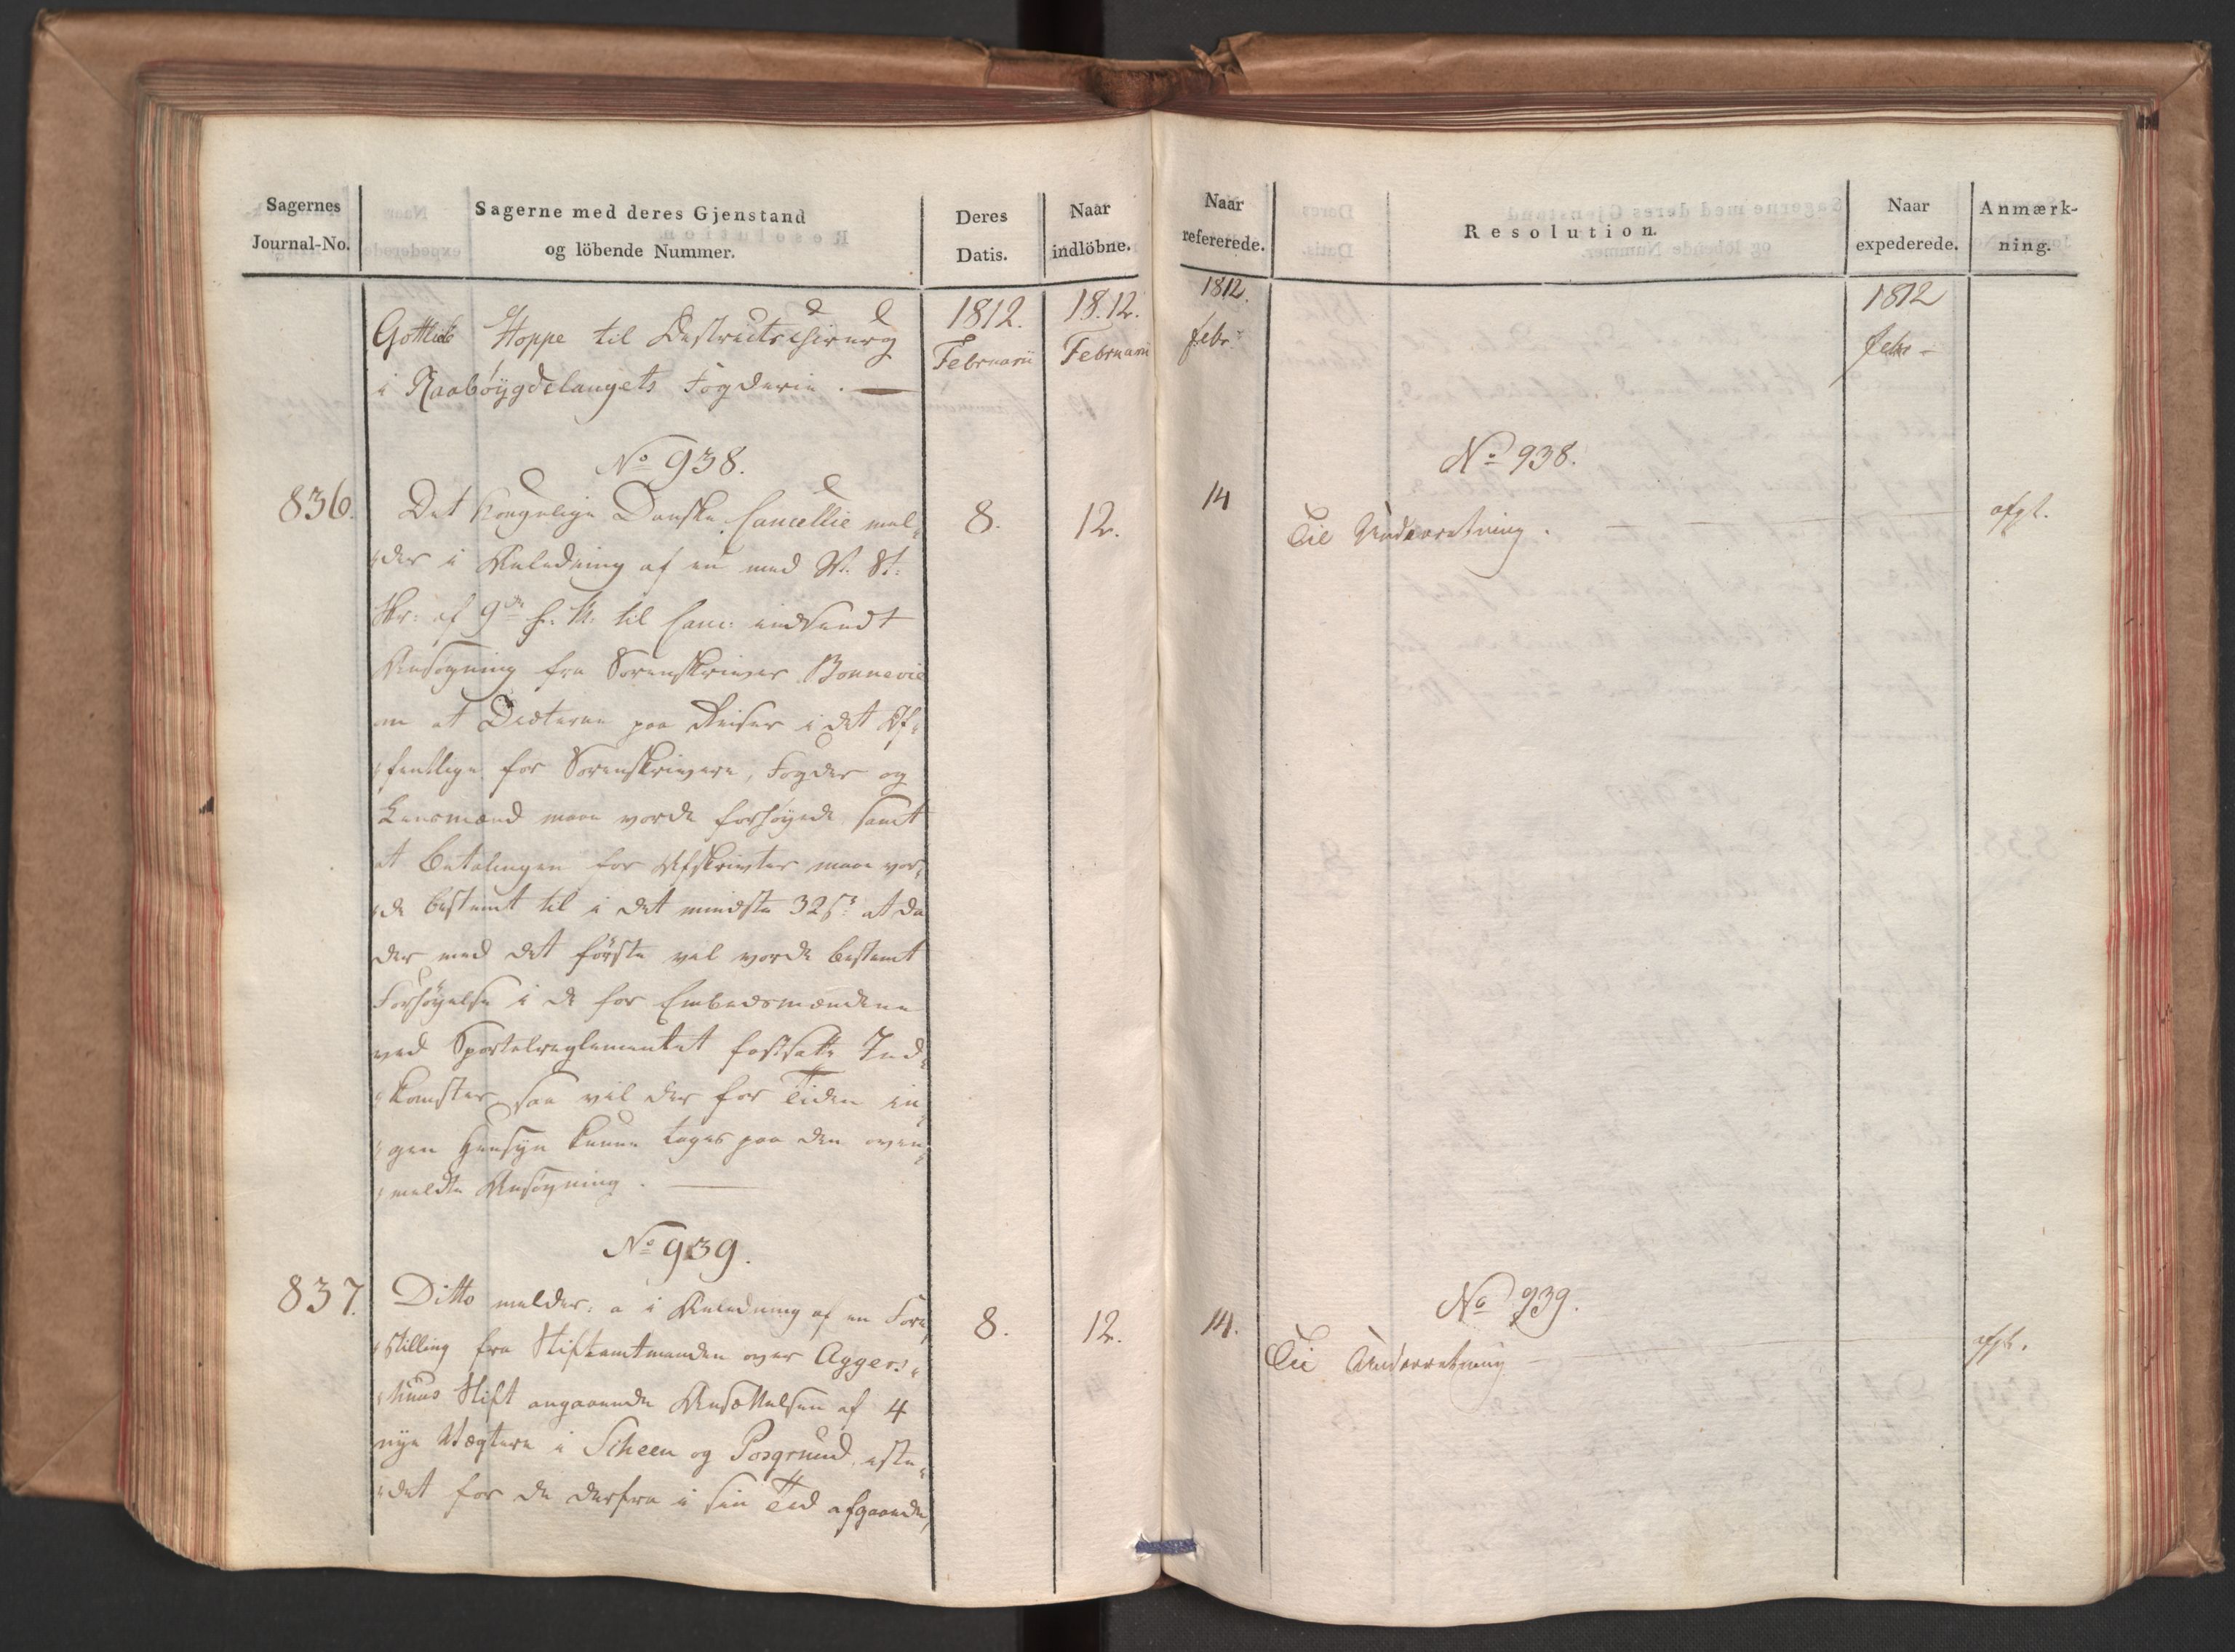 Sagernes
Journal-No.
Sagerne med deres Gjenstand
og löbende Nummer.
Deres
Datis.
Naar
indlöbne.
1812.
Februarii
1812.
Februarii
Gottlieb Hoppe til Districtschirurg
i Raabøÿgdelaugets Fogderie.
No 938.
836.
Det Kongelige Danske Cancellie mel-
der i Anledning af en med V. St:
Skr: af 9de f. M. til Canc: indsendt
Ansøgning fra Sorenskriver Bonnevie
om at Diæterne paa Reiser i det Of-
fentlige for Sorenskrivere, Fogder og
Lensmænd maae vorde forhøyede, samt
at Betalingen for Afskrivter maae vor-
de bestemt til i det mindste 32 s: at da
der med det første vel vorde bestemt
Forhøyelse i de for Embedsmændene
ved Sportelreglementet fastsatte Ind-
komster, saa vil der for Tiden in-
gen Hensyn kunne tages paa den oven-
meldte Ansøgning.
8.
12.
No 939.
837.
Ditto melder: a i Anledning af en Fore-
stilling fra Stiftamtmanden over Aggers-
huus Stift angaaende Ansættelsen af 4
nye Vægtere i Scheen og Porsgrund, iste-
det for de derfra i sin Tid afgaaende,
8.
12.
Naar
refererede.
Resolution.
Naar
expederede.
Anmærk-
ning.
1812.
febr:
1812
febr
No 938.
14
Til Underretning.
afgl.
No 939.
14.
Til Underretning
afgl.